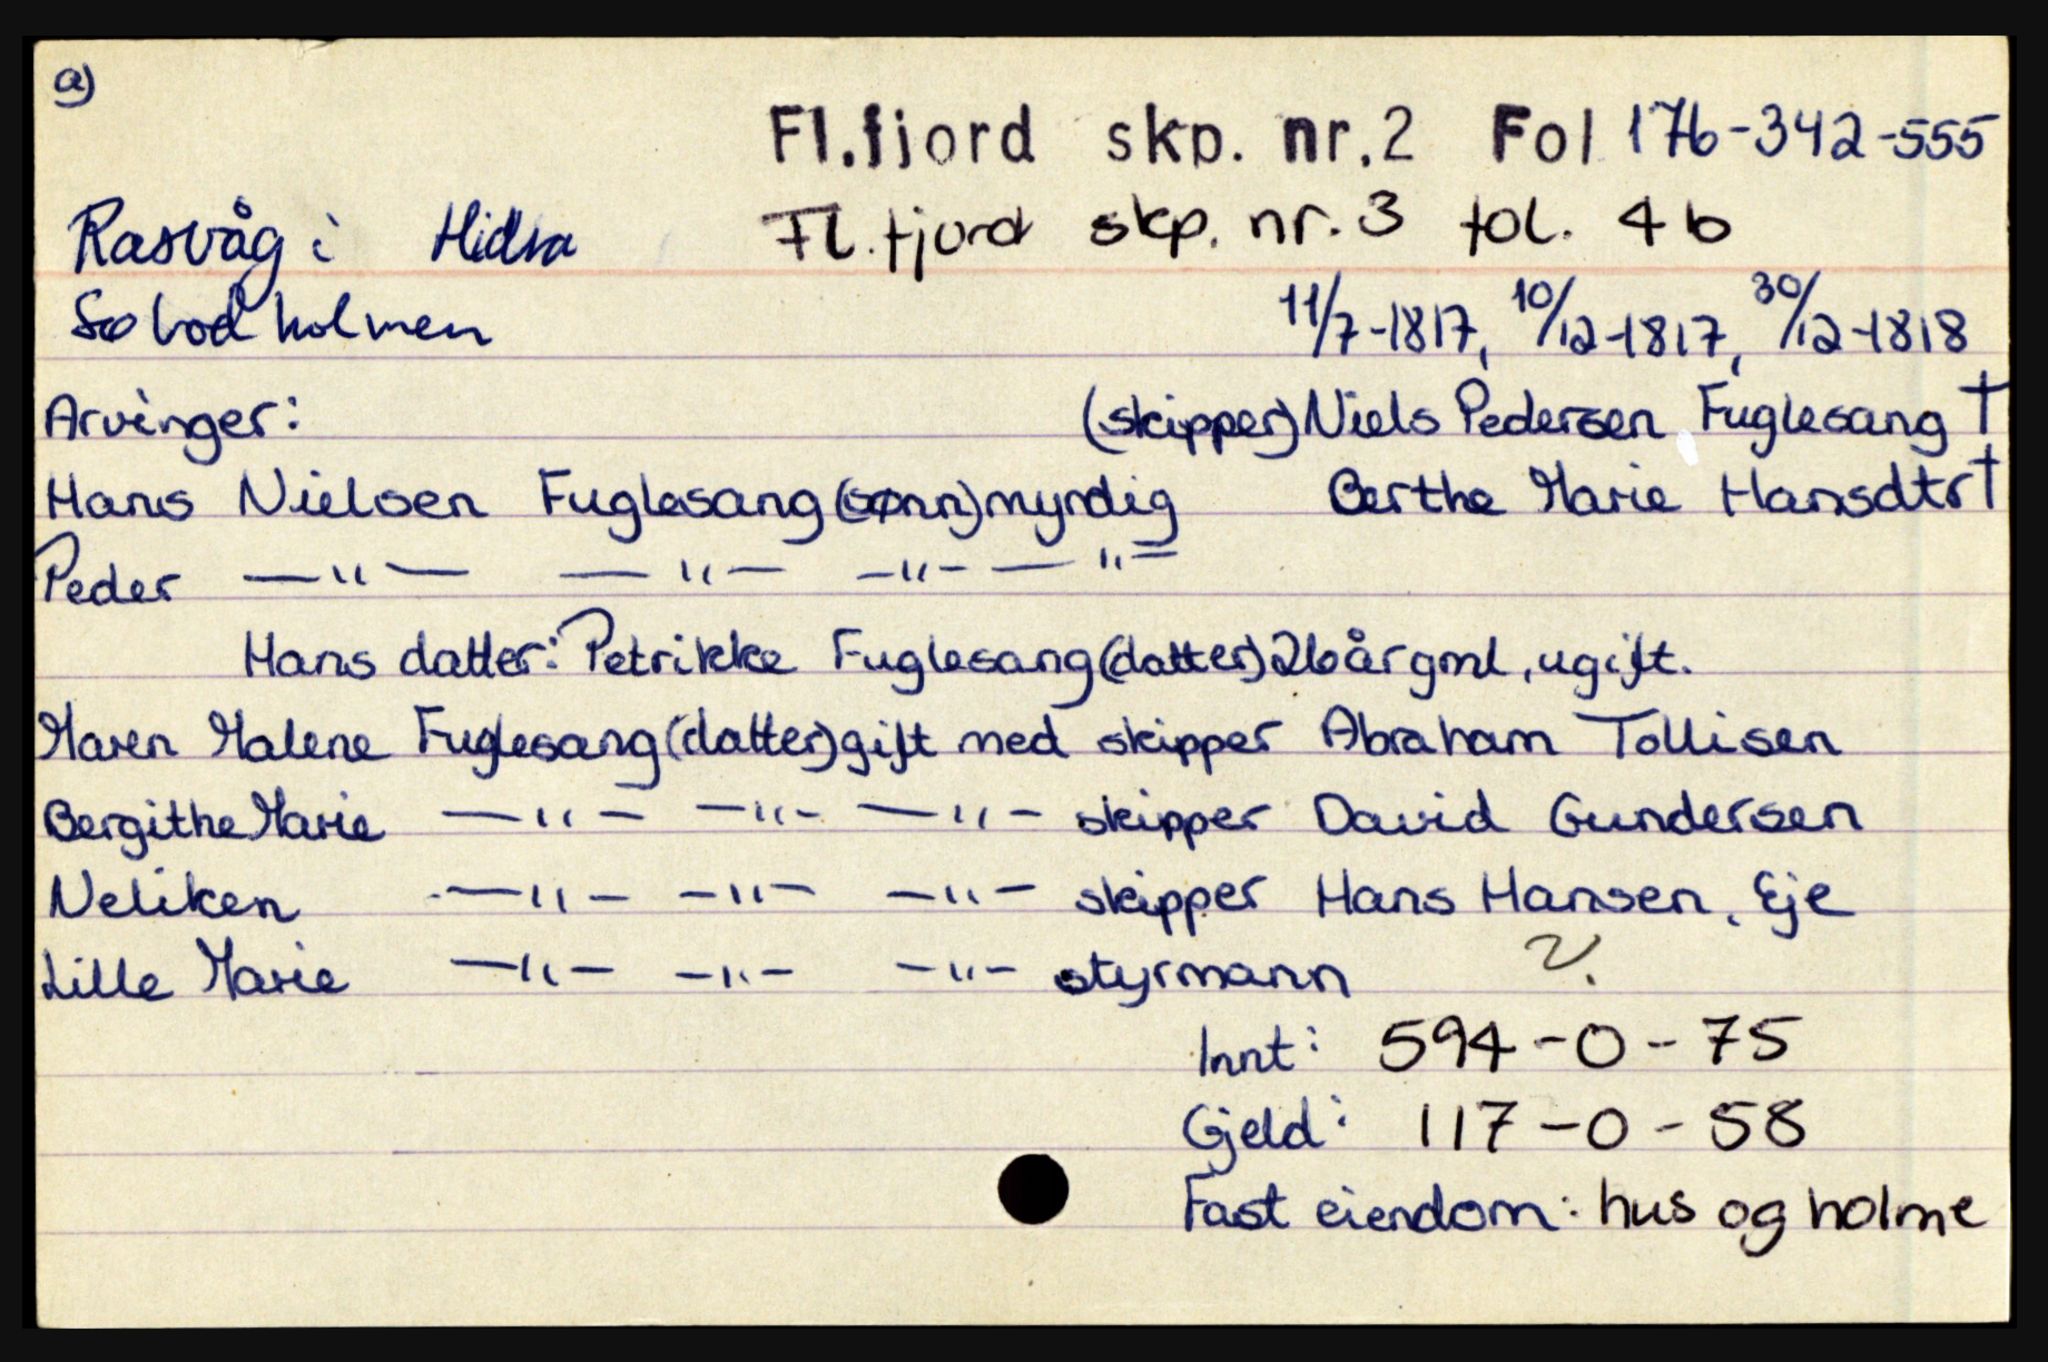 a)
Fl.fjord skp. nr.2 Fol 176-342-555
Rasvåg i Hidra Fl.fjord skp. nr.3 fol. 4b
Søbodholmen 11/7-1817, 10/12-1817, 30/12-1818
Arvinger: (skipper) Niels Pedersen Fuglesang †
Hans Nielsen Fuglesang (sønn) myndig Berthe Marie Hansdtr †
Peder —"— —"— —"— —"—
Hans datter: Petrikke Fuglesang (datter) 26 år gml, ugift.
Maren Malene Fuglesang (datter) gift med skipper Abraham Tollisen
Bergithe Marie —"— —"— —"— skipper David Gundersen
Neliken —"— —"— —"— skipper Hans Hansen, Eje
Lille Marie —"— —"— —"— styrmann ?
Innt: 594-0-75
Gjeld: 117-0-58
Fast eiendom: hus og holme